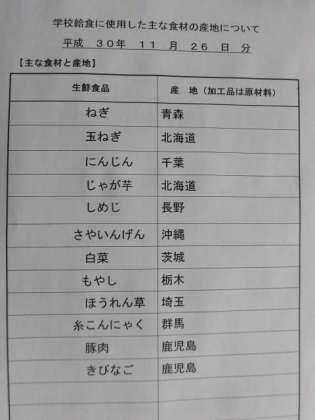 学校給食に使用した主な食材の産地について
平成 30年 11 月 26 日 分
【主な食材と産地】
生鮮食品 産 地（加工品は原材料）
ねぎ 青森
玉ねぎ 北海道
にんじん 千葉
じゃが芋 北海道
しめじ 長野
さやいんげん 沖縄
白菜 茨城
もやし 栃木
ほうれん草 埼玉
糸こんにゃく 群馬
豚肉 鹿児島
きびなご 鹿児島